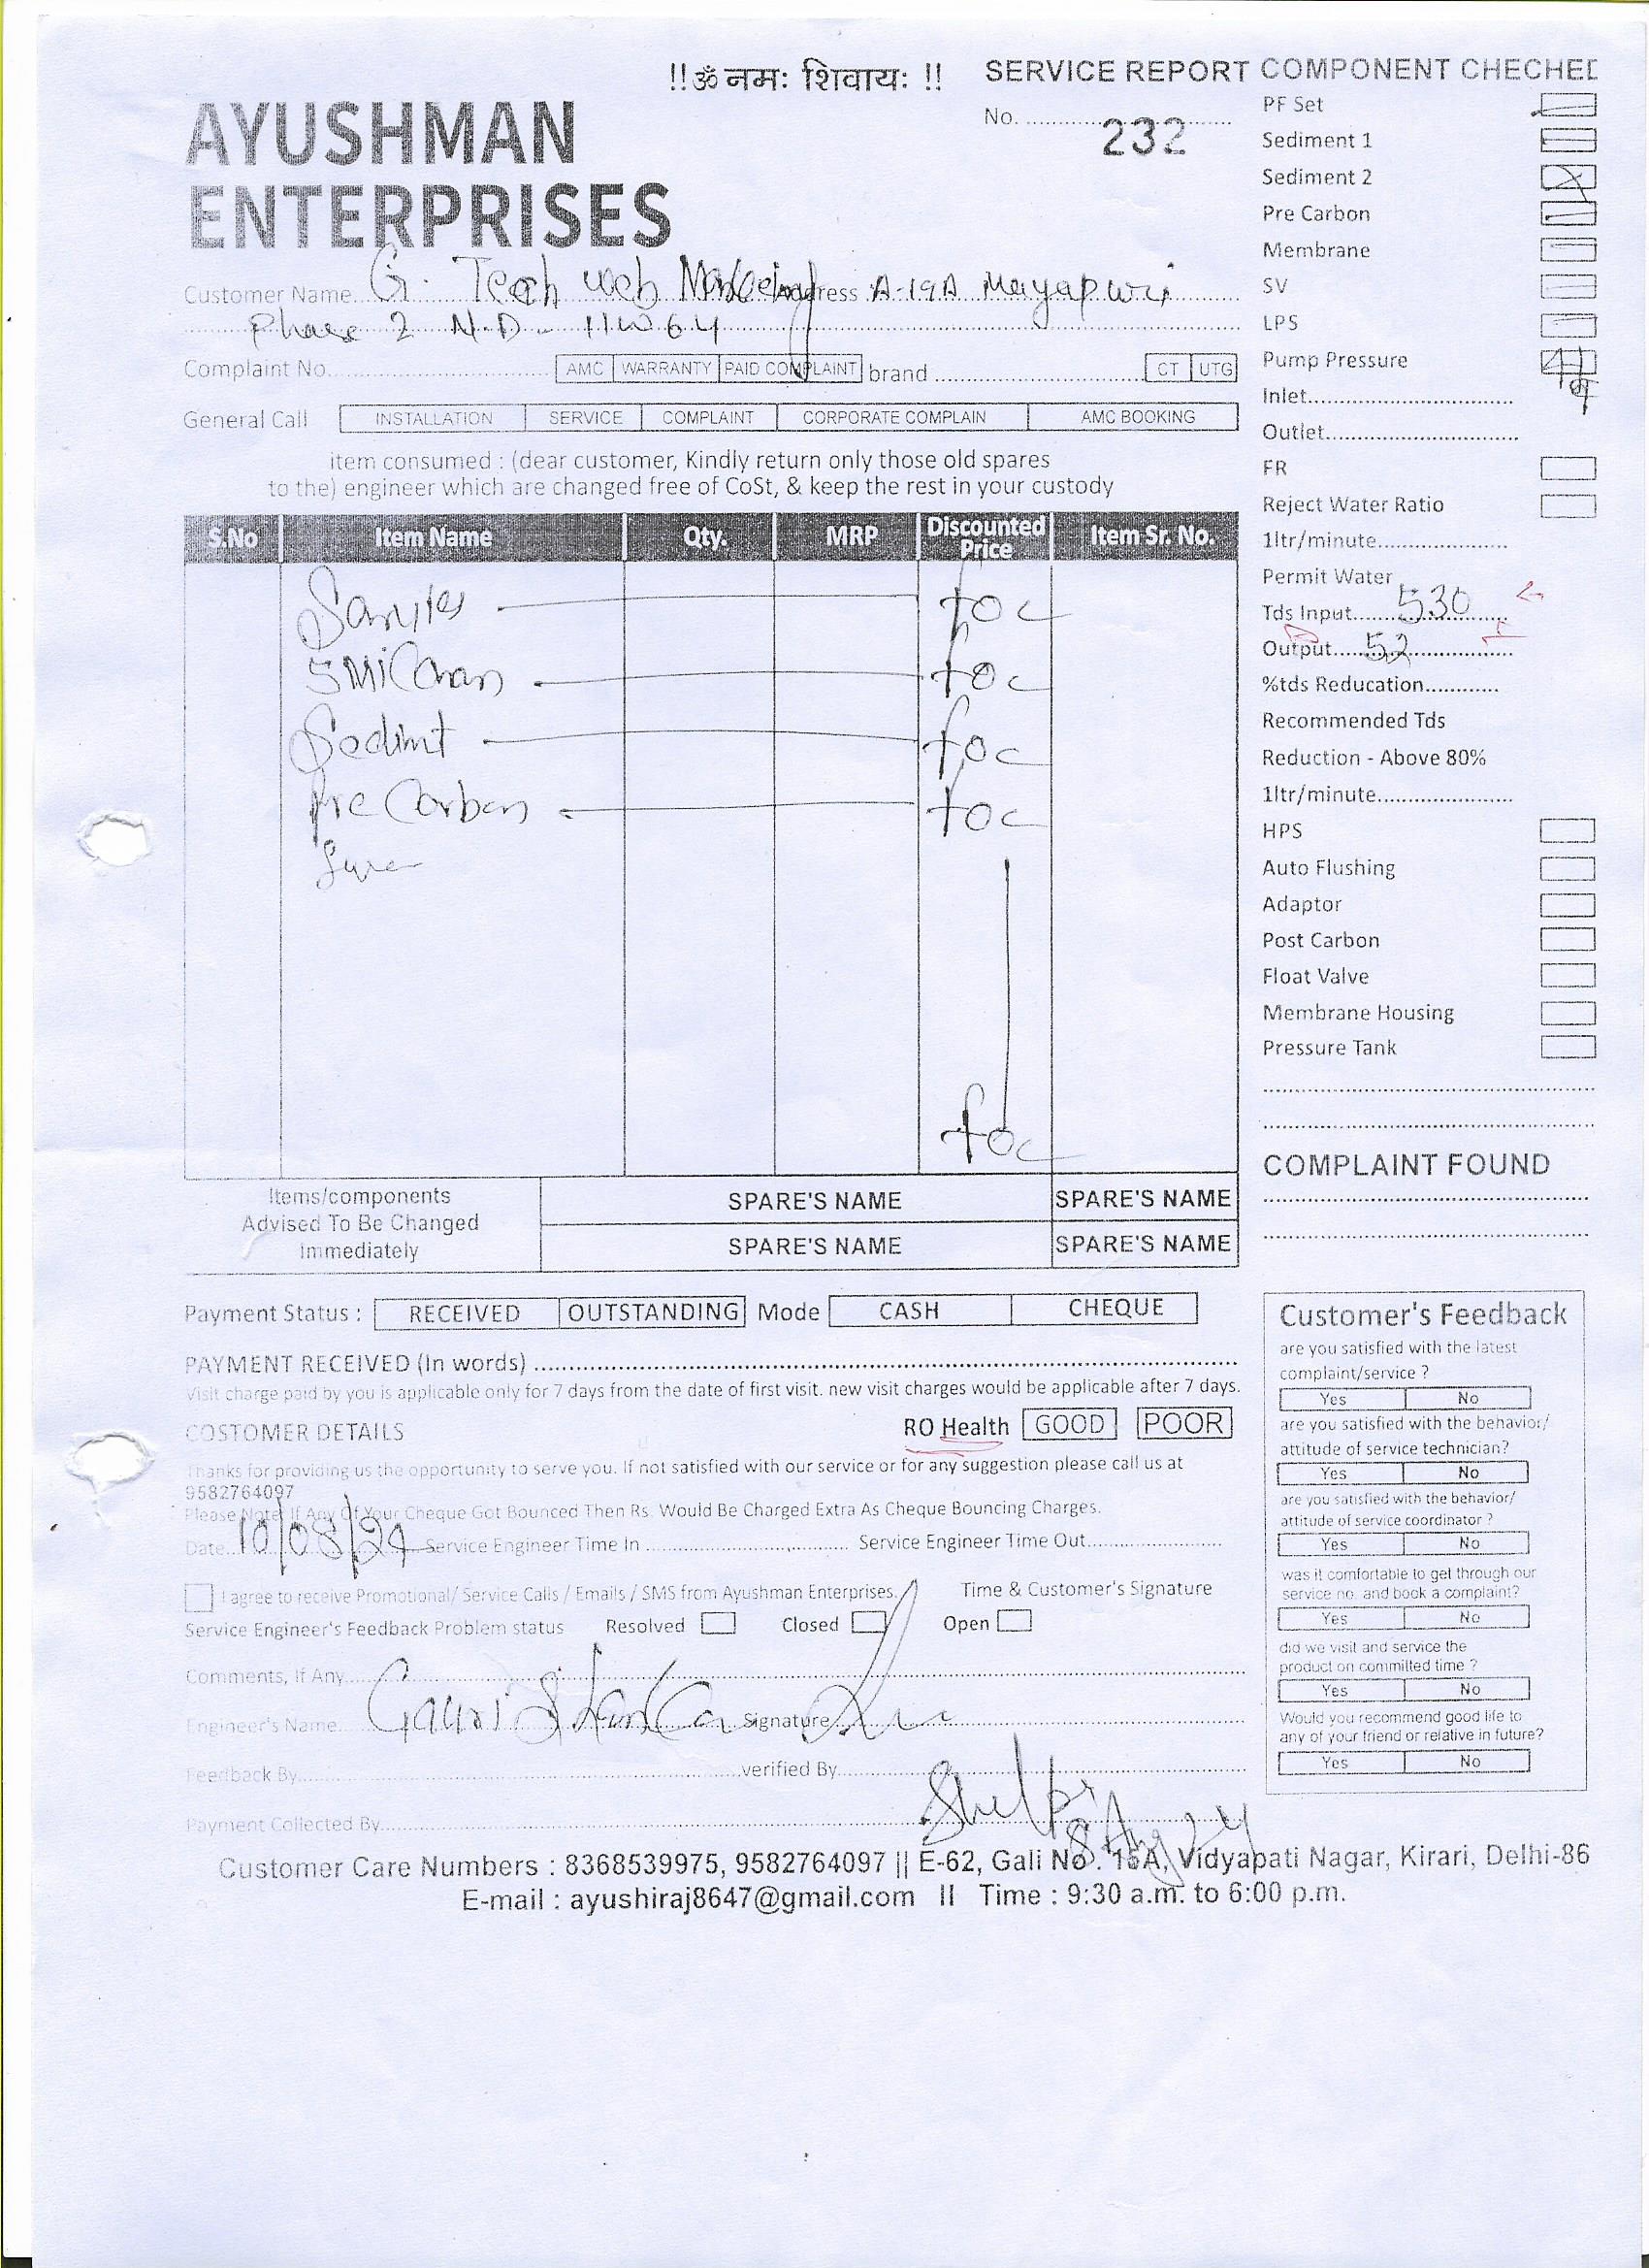 !!ॐ नमः शिवायः !!
SERVICE REPORT
No. 232
AYUSHMAN
ENTERPRISES
Customer Name G. Tech web Address A-19A Mayapuri
Phase 2 N.D - 110064
Complaint No. AMC WARRANTY PAID COMPLAINT brand CT UTG
General Call INSTALLATION SERVICE COMPLAINT CORPORATE COMPLAIN AMC BOOKING
item consumed : (dear customer, Kindly return only those old spares
to the) engineer which are changed free of CoSt, & keep the rest in your custody
S.No Item Name Qty. MRP Discounted Price Item Sr. No.
foc
5 foc
Sedimt foc
Pre Carbon foc
foc
Items/components
Advised To Be Changed
immediately
SPARE'S NAME SPARE'S NAME
SPARE'S NAME SPARE'S NAME
Payment Status : RECEIVED OUTSTANDING Mode CASH CHEQUE
PAYMENT RECEIVED (In words)
Visit charge paid by you is applicable only for 7 days from the date of first visit. new visit charges would be applicable after 7 days.
COSTOMER DETAILS RO Health GOOD POOR
Thanks for providing us the opportunity to serve you. If not satisfied with our service or for any suggestion please call us at
9582764097
Please Note: If Any Of Your Cheque Got Bounced Then Rs. Would Be Charged Extra As Cheque Bouncing Charges.
Date 10/08/24 Service Engineer Time In Service Engineer Time Out
I agree to receive Promotional/ Service Calls / Emails / SMS from Ayushman Enterprises. Time & Customer's Signature
Service Engineer's Feedback Problem status Resolved Closed Open
Comments, If Any
Engineer's Name Gauri Shankar Signature
Feedback By verified By
Payment Collected By
Customer Care Numbers : 8368539975, 9582764097 || E-62, Gali No. 16A, Vidyapati Nagar, Kirari, Delhi-86
E-mail : ayushiraj8647@gmail.com II Time : 9:30 a.m. to 6:00 p.m.
COMPONENT CHECHED
PF Set
Sediment 1
Sediment 2
Pre Carbon
Membrane
SV
LPS
Pump Pressure
Inlet
Outlet
FR
Reject Water Ratio
1ltr/minute
Permit Water
Tds Input 530
Output 52
%tds Reducation
Recommended Tds
Reduction - Above 80%
1ltr/minute
HPS
Auto Flushing
Adaptor
Post Carbon
Float Valve
Membrane Housing
Pressure Tank
COMPLAINT FOUND
Customer's Feedback
are you satisfied with the latest
complaint/service ?
Yes No
are you satisfied with the behavior/
attitude of service technician?
Yes No
are you satisfied with the behavior/
attitude of service coordinator ?
Yes No
was it comfortable to get through our
service no. and book a complaint?
Yes No
did we visit and service the
product on committed time ?
Yes No
Would you recommend good life to
any of your friend or relative in future?
Yes No